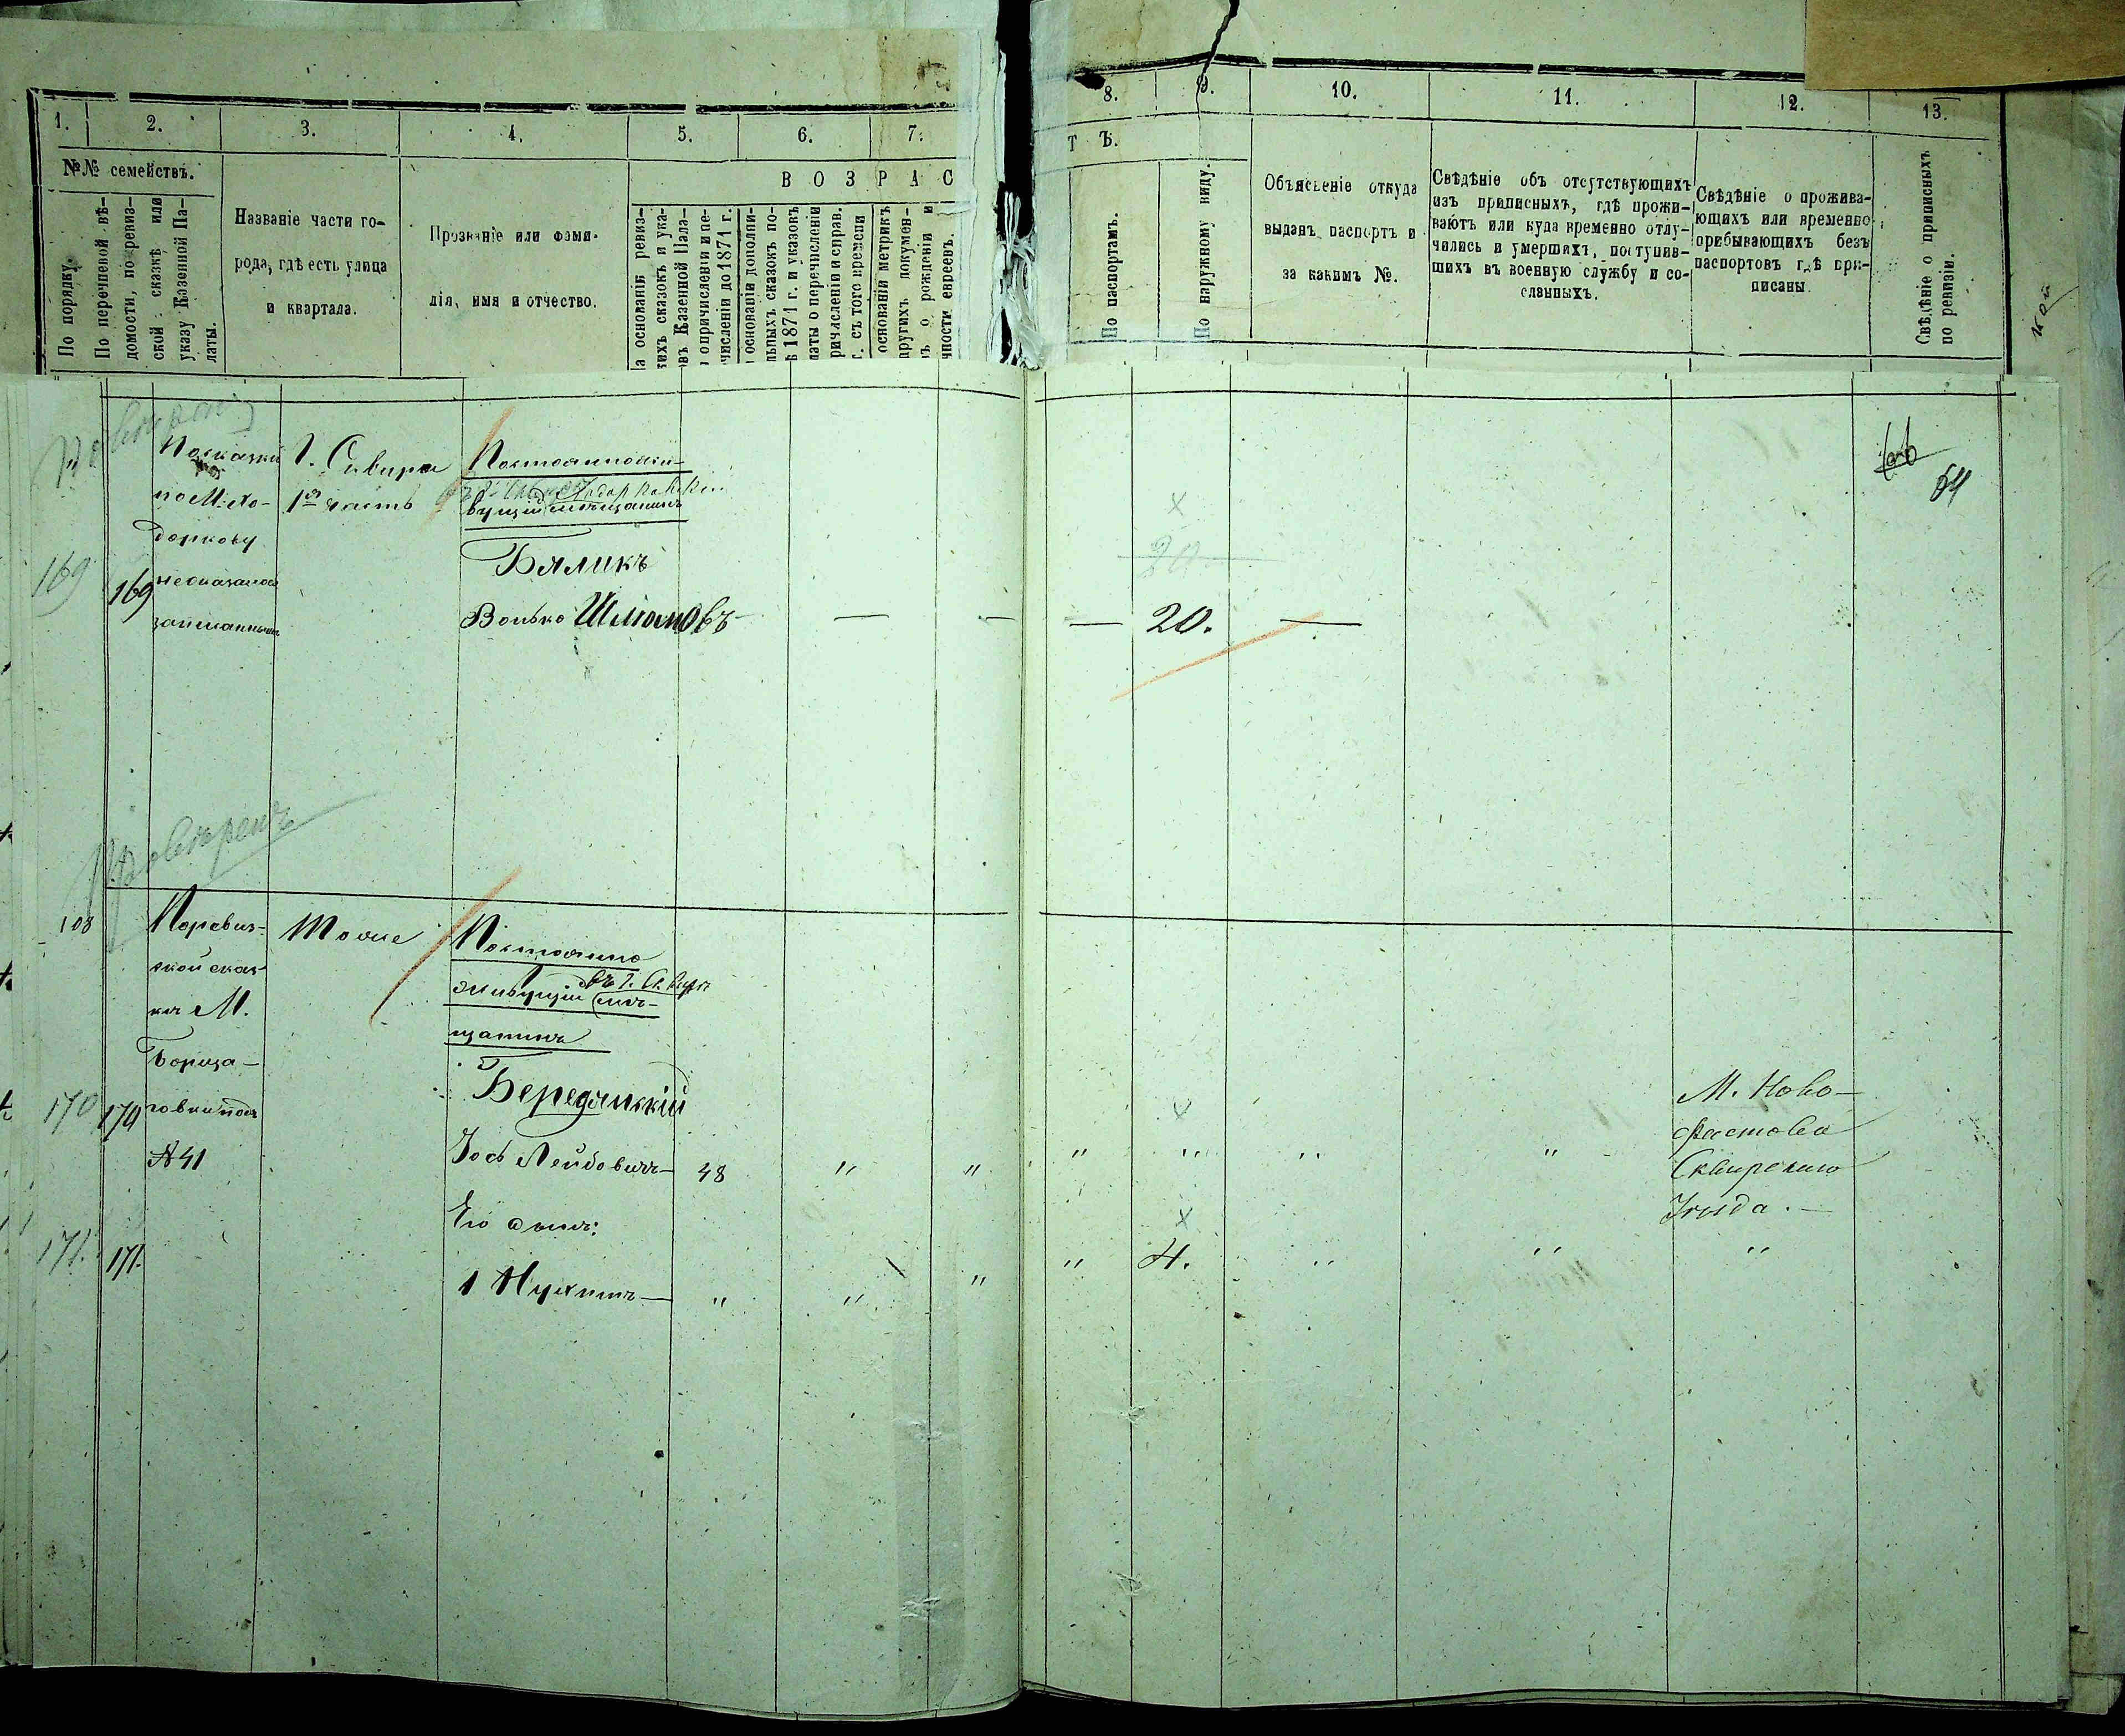 1. 2. 3. 4. 5. 6. 7. 8. 9. 10. 11. 12. 13.
№№ семействъ.
По порядку.
По перечневой вѣ-
домости, по ревиз-
ской сказкѣ или
указу Казенной Па-
латы.
Названіе части го-
рода, гдѣ есть улица
и квартала.
Прозваніе или фами-
лія, имя и отчество.
В О З Р А С
Т Ъ.
а основаніи ревиз-
кихъ сказокъ и ука-
овъ Казенной Пала-
о причисленіи и пе-
численіи до 1871 г.
основаніи дополни-
льныхъ сказокъ по-
ѣ 1871 г. и указокъ
латы о перечисленіи
ричисленіи и справ.
г. съ того времени
основаніи метрикъ
другихъ докумен-
ъ о рожденіи и
чности евреевъ.
По паспортамъ.
По наружному виду.
Объясненіе откуда
выданъ паспортъ и
за какимъ №.
Свѣдѣніе объ отсутствующихъ
изъ приписныхъ, гдѣ прожи-
ваютъ или куда временно отлу-
чились и умершихъ, поступив-
шихъ въ военную службу и со-
сланныхъ.
Свѣдѣніе о прожива-
ющихъ или временно
пребывающихъ безъ
паспортовъ гдѣ при-
писаны.
Свѣдѣніе о приписныхъ
по ревизіи.
кой
54
169
169
По сказки
по М. Хо-
доркову
неоказался
записаннымъ
Г. Сквира
1я часть
Постоянножи-
вущій мѣщанинъ
Бяликъ
Волько Шліомовъ — — — 20. —
Провѣренъ
108
По ревиз-
ской сказ-
кѣ М.
Борща-
говки подъ
№41
Тоже
Постоянно
живущій въ г. Сквирѣ мѣ-
щанинъ
170 170
Бередчикій
Іось Лейбовичъ — 48 " " " " " "
М. Ново-
фастова
Сквирскаго
Уѣзда. —
Его сынъ:
171. 171.
1 Нухимъ — " " " " 4. " " "